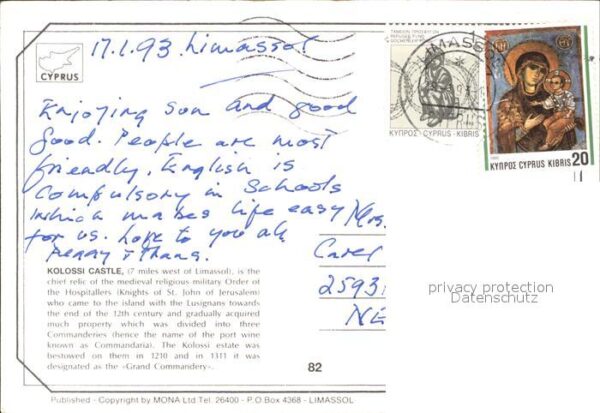 17.1.93 Limassol
CYPRUS
Enjoying son and good
food. People are most
friendly. English is
compulsory in Schools
which makes life easy
for us. Love to you all
Mrs.
Carel
2593
NE
KOLOSSI CASTLE, (7 miles west of Limassol), is the
chief relic of the medieval religious military Order of
the Hospitallers (Knights of St. John of Jerusalem)
who came to the island with the Lusignans towards
the end of the 12th century and gradually acquired
much property which was divided into three
Commanderies (hence the name of the port wine
known as Commandaria). The Kolossi estate was
bestowed on them in 1210 and in 1311 it was
designated as the «Grand Commandery».
82
Published - Copyright by MONA Ltd Tel. 26400 - P.O.Box 4368 - LIMASSOL
ΚΥΠΡΟΣ CYPRUS KIBRIS
LIMASSOL
20
ΚΥΠΡΟΣ CYPRUS KIBRIS
privacy protection
Datenschutz